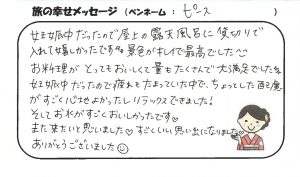 旅の幸せメッセージ（ペンネーム： ピース ）
妊娠中だったので屋上の露天風呂に貸切りで
入れて嬉しかったです 景色がキレイで最高でした〜
お料理がとってもおいしくて量もたくさんで大満足でした
妊娠中だったので疲れもたまっていた中で、ちょっとした
がすごく心地よかったしリラックスできました！
そしてお水がすごくおいしかったです♡
また来たいと思いました♡すごくいい思い出になりました
ありがとうございました☺